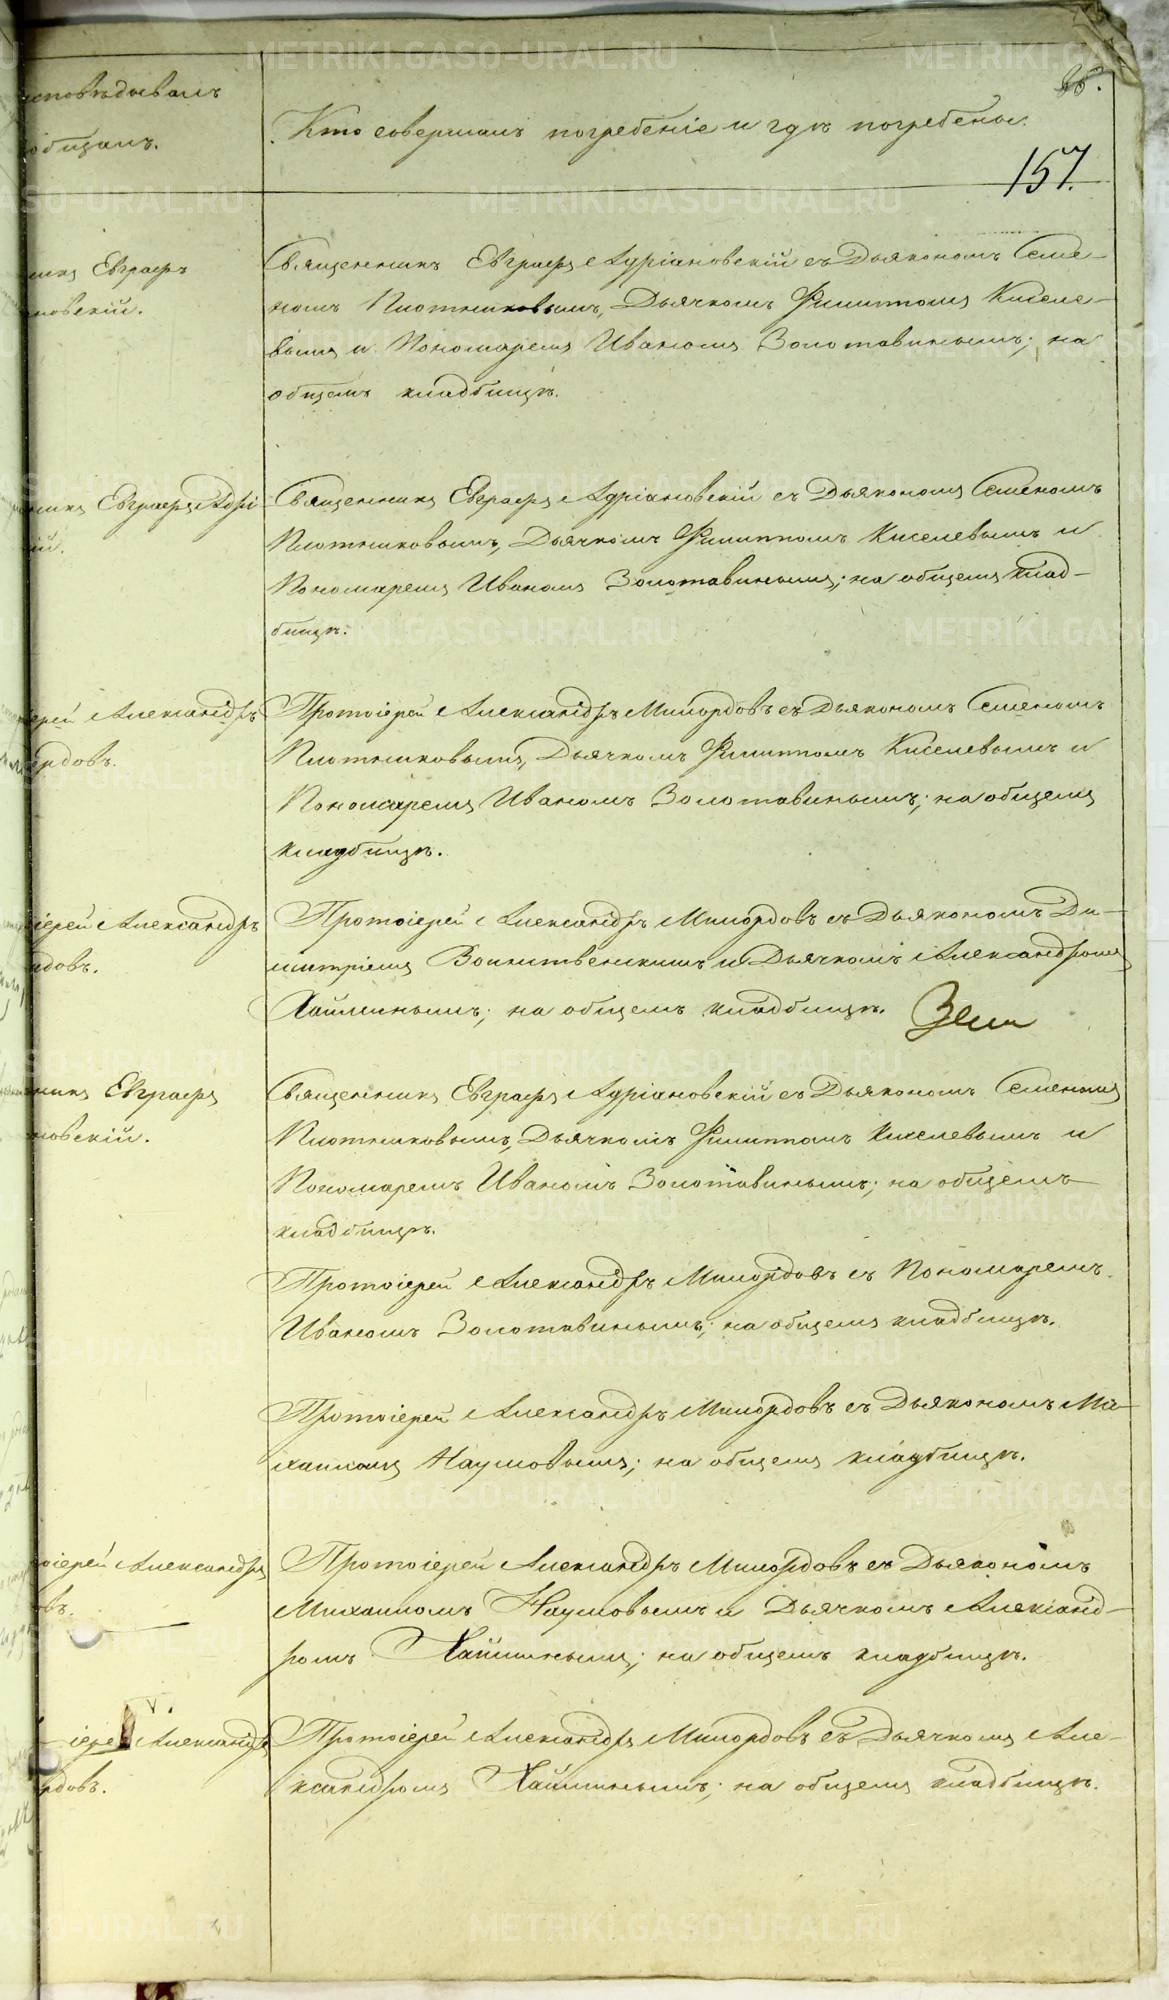 исповѣдывалъ
общалъ.
Кто совершалъ погребеніе и гдѣ погребены.
157.
Евграфъ
новскій.
Священникъ Евграфъ Адріановскій съ Дьякономъ Семе-
номъ Плотниковымъ, Дьячкомъ Филиппомъ Киселе-
вымъ и Пономаремъ Иваномъ Золотавинымъ; на
общемъ кладбищѣ.
Евграфъ Адрі-
ій.
Священникъ Евграфъ Адріановскій съ Дьякономъ Семеномъ
Плотниковымъ, Дьячкомъ Филиппомъ Киселевымъ и
Пономаремъ Иваномъ Золотавинымъ; на общемъ клад-
бищѣ.
ерей Александръ
ордовъ.
Протоіерей Александръ Милордовъ съ Дьякономъ Семеномъ
Плотниковымъ, Дьячкомъ Филиппомъ Киселевымъ и
Пономаремъ Иваномъ Золотавинымъ; на общемъ
кладбищѣ.
іерей Александръ
рдовъ.
Протоіерей Александръ Милордовъ съ Дьякономъ Ди-
митріемъ Воинственскимъ и Дьячкомъ Александромъ
Хайминымъ; на общемъ кладбищѣ.
никъ Евграфъ
новскій.
Священникъ Евграфъ Адріановскій съ Дьякономъ Семеномъ
Плотниковымъ, Дьячкомъ Филиппомъ Киселевымъ и
Пономаремъ Иваномъ Золотавинымъ; на общемъ
кладбищѣ.
Протоіерей Александръ Милордовъ съ Пономаремъ
Иваномъ Золотавинымъ; на общемъ кладбищѣ.
Протоіерей Александръ Милордовъ съ Дьякономъ Ми-
хаиломъ Наумовымъ; на общемъ кладбищѣ.
оіерей Александръ
овъ.
Протоіерей Александръ Милордовъ съ Дьякономъ
Михаиломъ Наумовымъ и Дьячкомъ Александ-
ромъ Хайминымъ; на общемъ кладбищѣ.
іерей Александръ
рдовъ.
Протоіерей Александръ Милордовъ съ Дьячкомъ Але-
ксандромъ Хайминымъ; на общемъ кладбищѣ.
METRIKI.GASO-URAL.RU